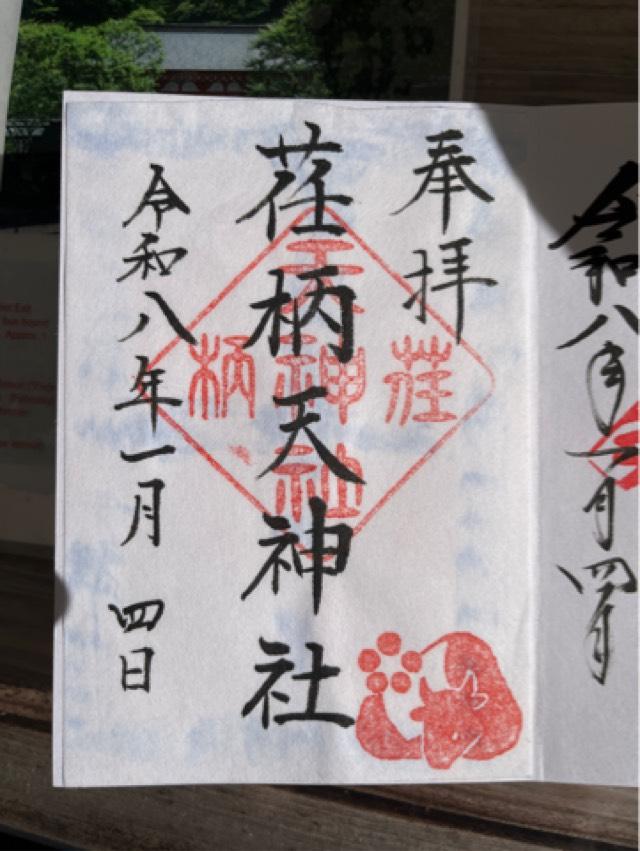 奉拝
荏柄天神社
荏柄天神社
令和八年一月四日
令和八年一月四日